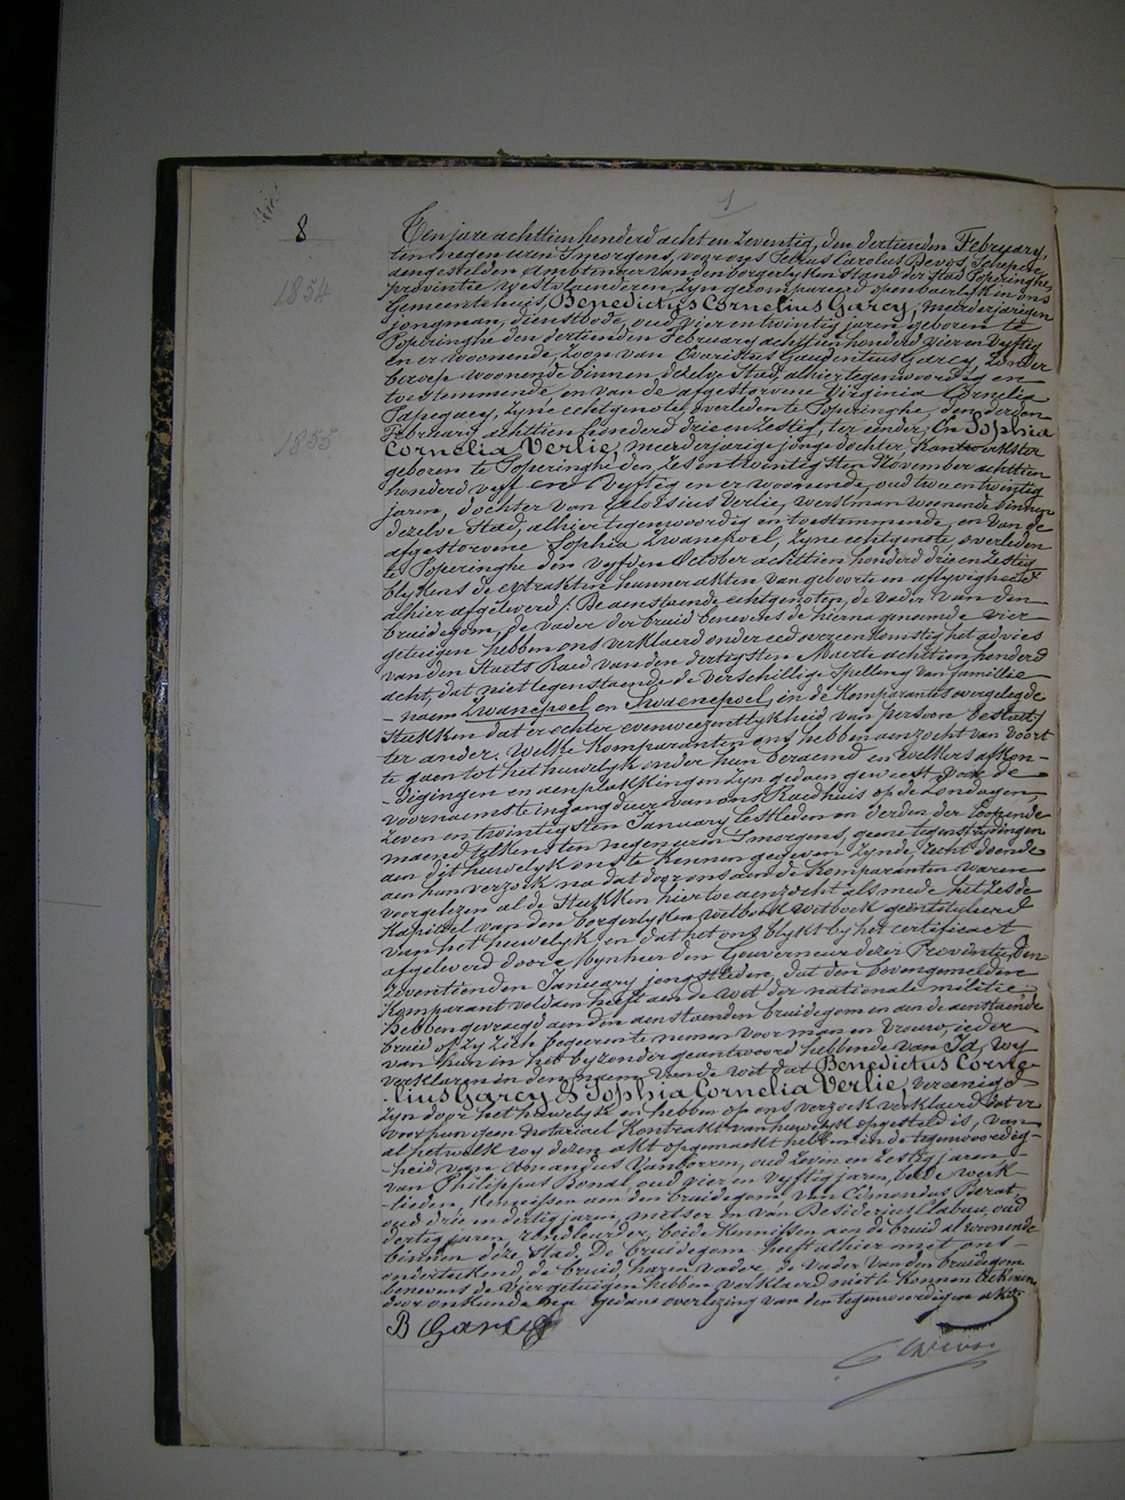 1
8
Ten jare achttien honderd acht en zeventig, den dertienden February,
ten negen uren 's morgens, voor ons Petrus Carolus Devos, Schepene,
aengestelden Ambtenaer van den borgerlyken stand der stad Poperinghe,
provintie Westvlaenderen, zyn gekompareerd openbaerlyk in ons
1854
Gemeentehuis, Benedictus Cornelius Garcy, meerderjarigen
jongman, dienstbode, oud vier en twintig jaren geboren te
Poperinghe den dertienden February achttien honderd vier en vyftig
en er woonende, zoon van Evaristus Gaudentius Garcy, zonder
beroep woonende binnen dezelve Stad, alhier tegenwoordig en
toestemmende, en van de afgestorvene Virginia Cornelia
zyne echtgenote, overleden te Poperinghe, den derden
February achttien honderd drie en zestig, ter eender; En Sophia
1855
Cornelia Verlie, meerderjarige jonge dochter, kantwerkster
geboren te Poperinghe den zes en twintigsten November achttien
honderd vyf en vyftig en er woonende, oud twee en twintig
jaren, dochter van Aloisius Verlie, werkman woonende binnen
dezelve Stad, alhier tegenwoordig en toestemmende, en van de
afgestorvene Sophia Zwanepoel, zyne echtgenote overleden
te Poperinghe den vyfden October achttien honderd drie en zestig
blykens de extrakten hunner akten van geboorte en aflyvigheid
alhier afgeleverd /: De aenstaende echtgenoten, de vader van den
bruidegom, de vader der bruid benevens de hierna genoemde vier
getuigen hebben ons verklaerd onder eed overeenkomstig het advies
van den Staets Raed van den dertigsten Maerte achttien honderd
acht, dat niettegenstaende de verschillige spelling van familie
- naem Zwanepoel en Swaenepoel, in de komparantes overgelegde
stukken dat er echter eenweezentlykheid van persoon bestaet:/
ter ander. Welke komparanten ons hebben aenzocht van voort
te gaen tot het huwelyk onder hun beraemd en welkers afkon-
- digingen en aenplakkingen zyn gedaen geweest voor de
voornaemste ingangdeur van ons Raedhuis op de zondagen,
zeven en twintigsten January lestleden en derden der loopende
maend telkens ten negen uren 's morgens, geene tegenstrydingen
aen dit huwelyk ons te kennen gegeven zynde, recht doende
aen hun verzoek na dat door ons aen de komparanten waren
voorgelezen al de stukken hiertoe aenzocht als mede het zesde
Kapittel van den borgerlyken wetboek geintituleerd
van het huwelyk, en dat het ons blykt by het certificaet
afgeleverd door Mynheer den Gouverneur dezer Provintie, den
zeventienden January jongstleden, dat den bovengemelden
Komparant voldaen heeft aen de wet der nationale militie;
Hebben gevraegd aen den aenstaenden bruidegom en aen de aenstaende
bruid of zy zich begeerente nemen voor man en vrouw, ieder
van hun in het byzonder geantwoord hebbende van Ja, wy
verklaren in den naem van de wet dat Benedictus Corne-
- lius Garcy & Sophia Cornelia Verlie, vereenigd
zyn door het huwelyk en hebben op ons verzoek verklaerd dat er
voor hun geen notariael kontrakt van huwelyk opgesteld is, van
al hetwelk wy dezen akt opgemaekt hebben in de tegenwoordig-
- heid van Amandus Vanborren, oud zeven en zestig jaren,
van Philippus Bonal, oud vier en vyftig jaren, beide werk-
- lieden, kennissen aen den bruidegom, van Edmondus Berat,
oud drie en dertig jaren, metser en van Desiderius Clabau, oud
dertig jaren, beide kennissen aen de bruid al woonende
binnen deze Stad. De bruidegom heeft alhier met ons
onderteekend, de bruid, haren vader, de vader van den bruidegom
benevens de vier getuigen hebben verklaerd niet te konnen teekenen
door onkunde na gedane overlezing van den tegenwoordigen akt.
B Garcy